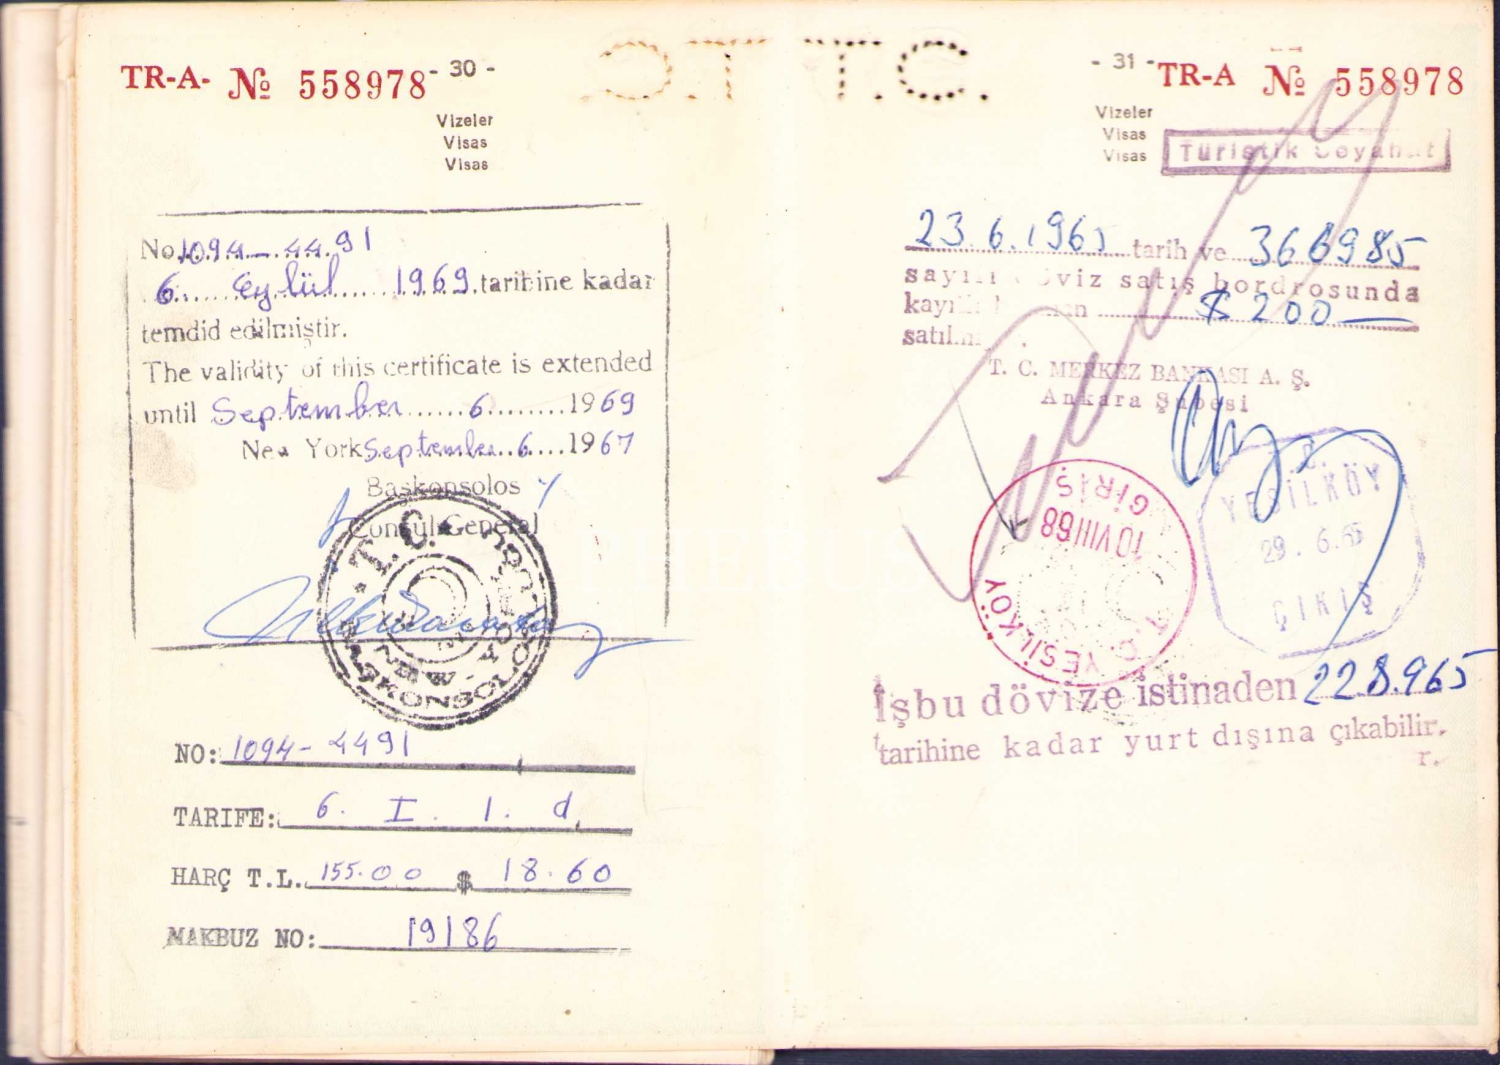 TR-A- № 558978 - 30 -
Vizeler
Visas
Visas
No. 1094-4491
6 Eylül 1969 tarihine kadar
temdid edilmiştir.
The validity of this certificate is extended
until September 6 1969
New York September 6 1967
Başkonsolos
Consul General
T. C.
NEW YORK
BAŞKONSOLOSLUĞU
NO: 1094-4491
TARIFE: 6. I. 1. d.
HARÇ T.L. 155.00 $ 18.60
MAKBUZ NO: 19186
T.C.
- 31 - TR-A № 558978
Vizeler
Visas
Visas
Türistik Seyahat
23.6.1965 tarih ve 366985
satış bordrosunda
$ 200
T. C. MERKEZ BANKASI A. Ş.
Ankara Şubesi
GİRİŞ
10 VIII 68
T. C. YEŞİLKÖY
YEŞİLKÖY
29.6.65
ÇIKIŞ
İşbu dövize istinaden 22.8.965
tarihine kadar yurt dışına çıkabilir.
r.